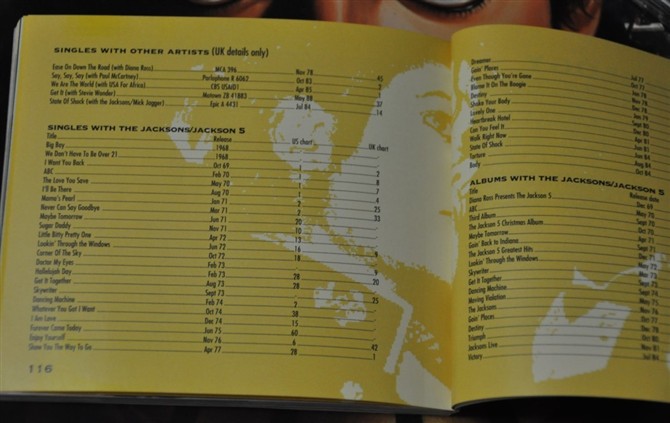 SINGLES WITH OTHER ARTISTS (UK details only)
Ease On Down The Road (with Diana Ross) MCA 396 Nov 78 45
Say, Say, Say (with Paul McCartney) Parlophone R 6062 Oct 83 2
We Are The World (with USA For Africa) CBS USAID1 Apr 85 1
Get It (with Stevie Wonder) Motown ZB 41883 May 88 37
State Of Shock (with the Jacksons/Mick Jagger) Epic A 4431 Jul 84 14
SINGLES WITH THE JACKSONS/JACKSON 5
Title Release US chart UK chart
Big Boy 1968
We Don't Have To Be Over 21 1968
I Want You Back Oct 69 1 2
ABC Feb 70 1 8
The Love You Save May 70 1 7
I'll Be There Aug 70 1 4
Mama's Pearl Jan 71 2 25
Never Can Say Goodbye Mar 71 2 33
Maybe Tomorrow Jun 71 20
Sugar Daddy Nov 71 10
Little Bitty Pretty One Apr 72 13
Lookin' Through the Windows Jun 72 16 9
Corner Of The Sky Oct 72 18
Doctor My Eyes Feb 73 9
Hallelujah Day Feb 73 28 20
Get It Together Aug 73 28
Skywriter Sept 73 25
Dancing Machine Feb 74 2
Whatever You Got I Want Oct 74 38
I Am Love Dec 74 15
Forever Came Today Jun 75 60
Enjoy Yourself Nov 76 6 42
Show You The Way To Go Apr 77 28 1
116
Dreamer
Goin' Places Jul 77
Even Though You're Gone Oct 77
Blame It On The Boogie
Destiny
Shake Your Body
Lovely One
Heartbreak Hotel
Can You Feel It
Walk Right Now
State Of Shock
Torture Aug 84
Body Oct 84
ALBUMS WITH THE JACKSONS/JACKSON 5
Title Release date
Diana Ross Presents The Jackson 5 Dec 69
ABC May 70
Third Album Sept 70
The Jackson 5 Christmas Album Oct 70
Maybe Tomorrow Apr 71
Goin' Back to Indiana Sept 71
The Jackson 5 Greatest Hits Dec 71
Lookin' Through the Windows May 72
Skywriter
Get It Together
Dancing Machine
Moving Violation
The Jacksons
Goin' Places
Destiny
Triumph
Jacksons Live
Victory Jul 84